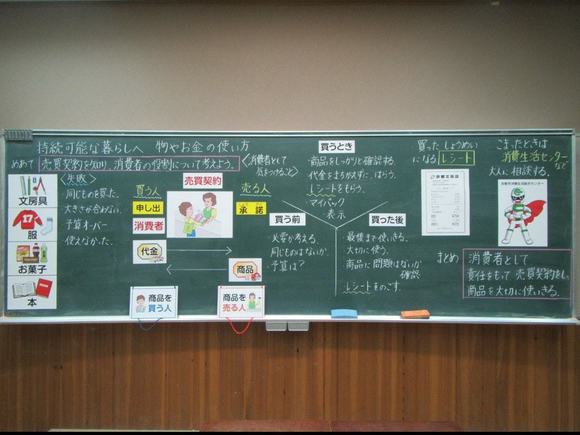 持続可能な暮らしへ 物やお金の使い方
めあて 売買契約を知り、消費者の役割について考えよう。
文房具
服
お菓子
本
〈失敗〉
同じものを買った。
大きさが合わない。
予算オーバー
使えなかった。
売買契約
買う人
売る人
申し出
承諾
消費者
代金
商品
商品を
買う人
商品を
売る人
〈消費者として
気をつけること〉
買うとき
商品をしっかりと確認する。
代金をまちがえずにはらう。
レシートをもらう。
マイバック
表示
買う前
必要か考える。
同じものはないか
予算は?
買った後
最後まで使いきる。
大切に使う。
商品に問題はないか
確認
レシートをのこす。
買ったしょうめい
になるレシート
こまったときは
消費生活センター
など
大人に相談する。
まとめ
消費者として
責任をもって売買契約をし、
商品を大切に使いきる。